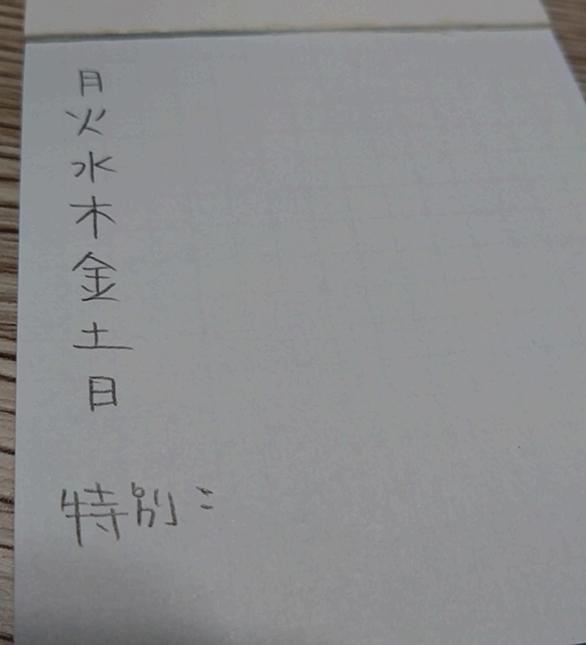 月
火
水
木
金
土
日
特別: